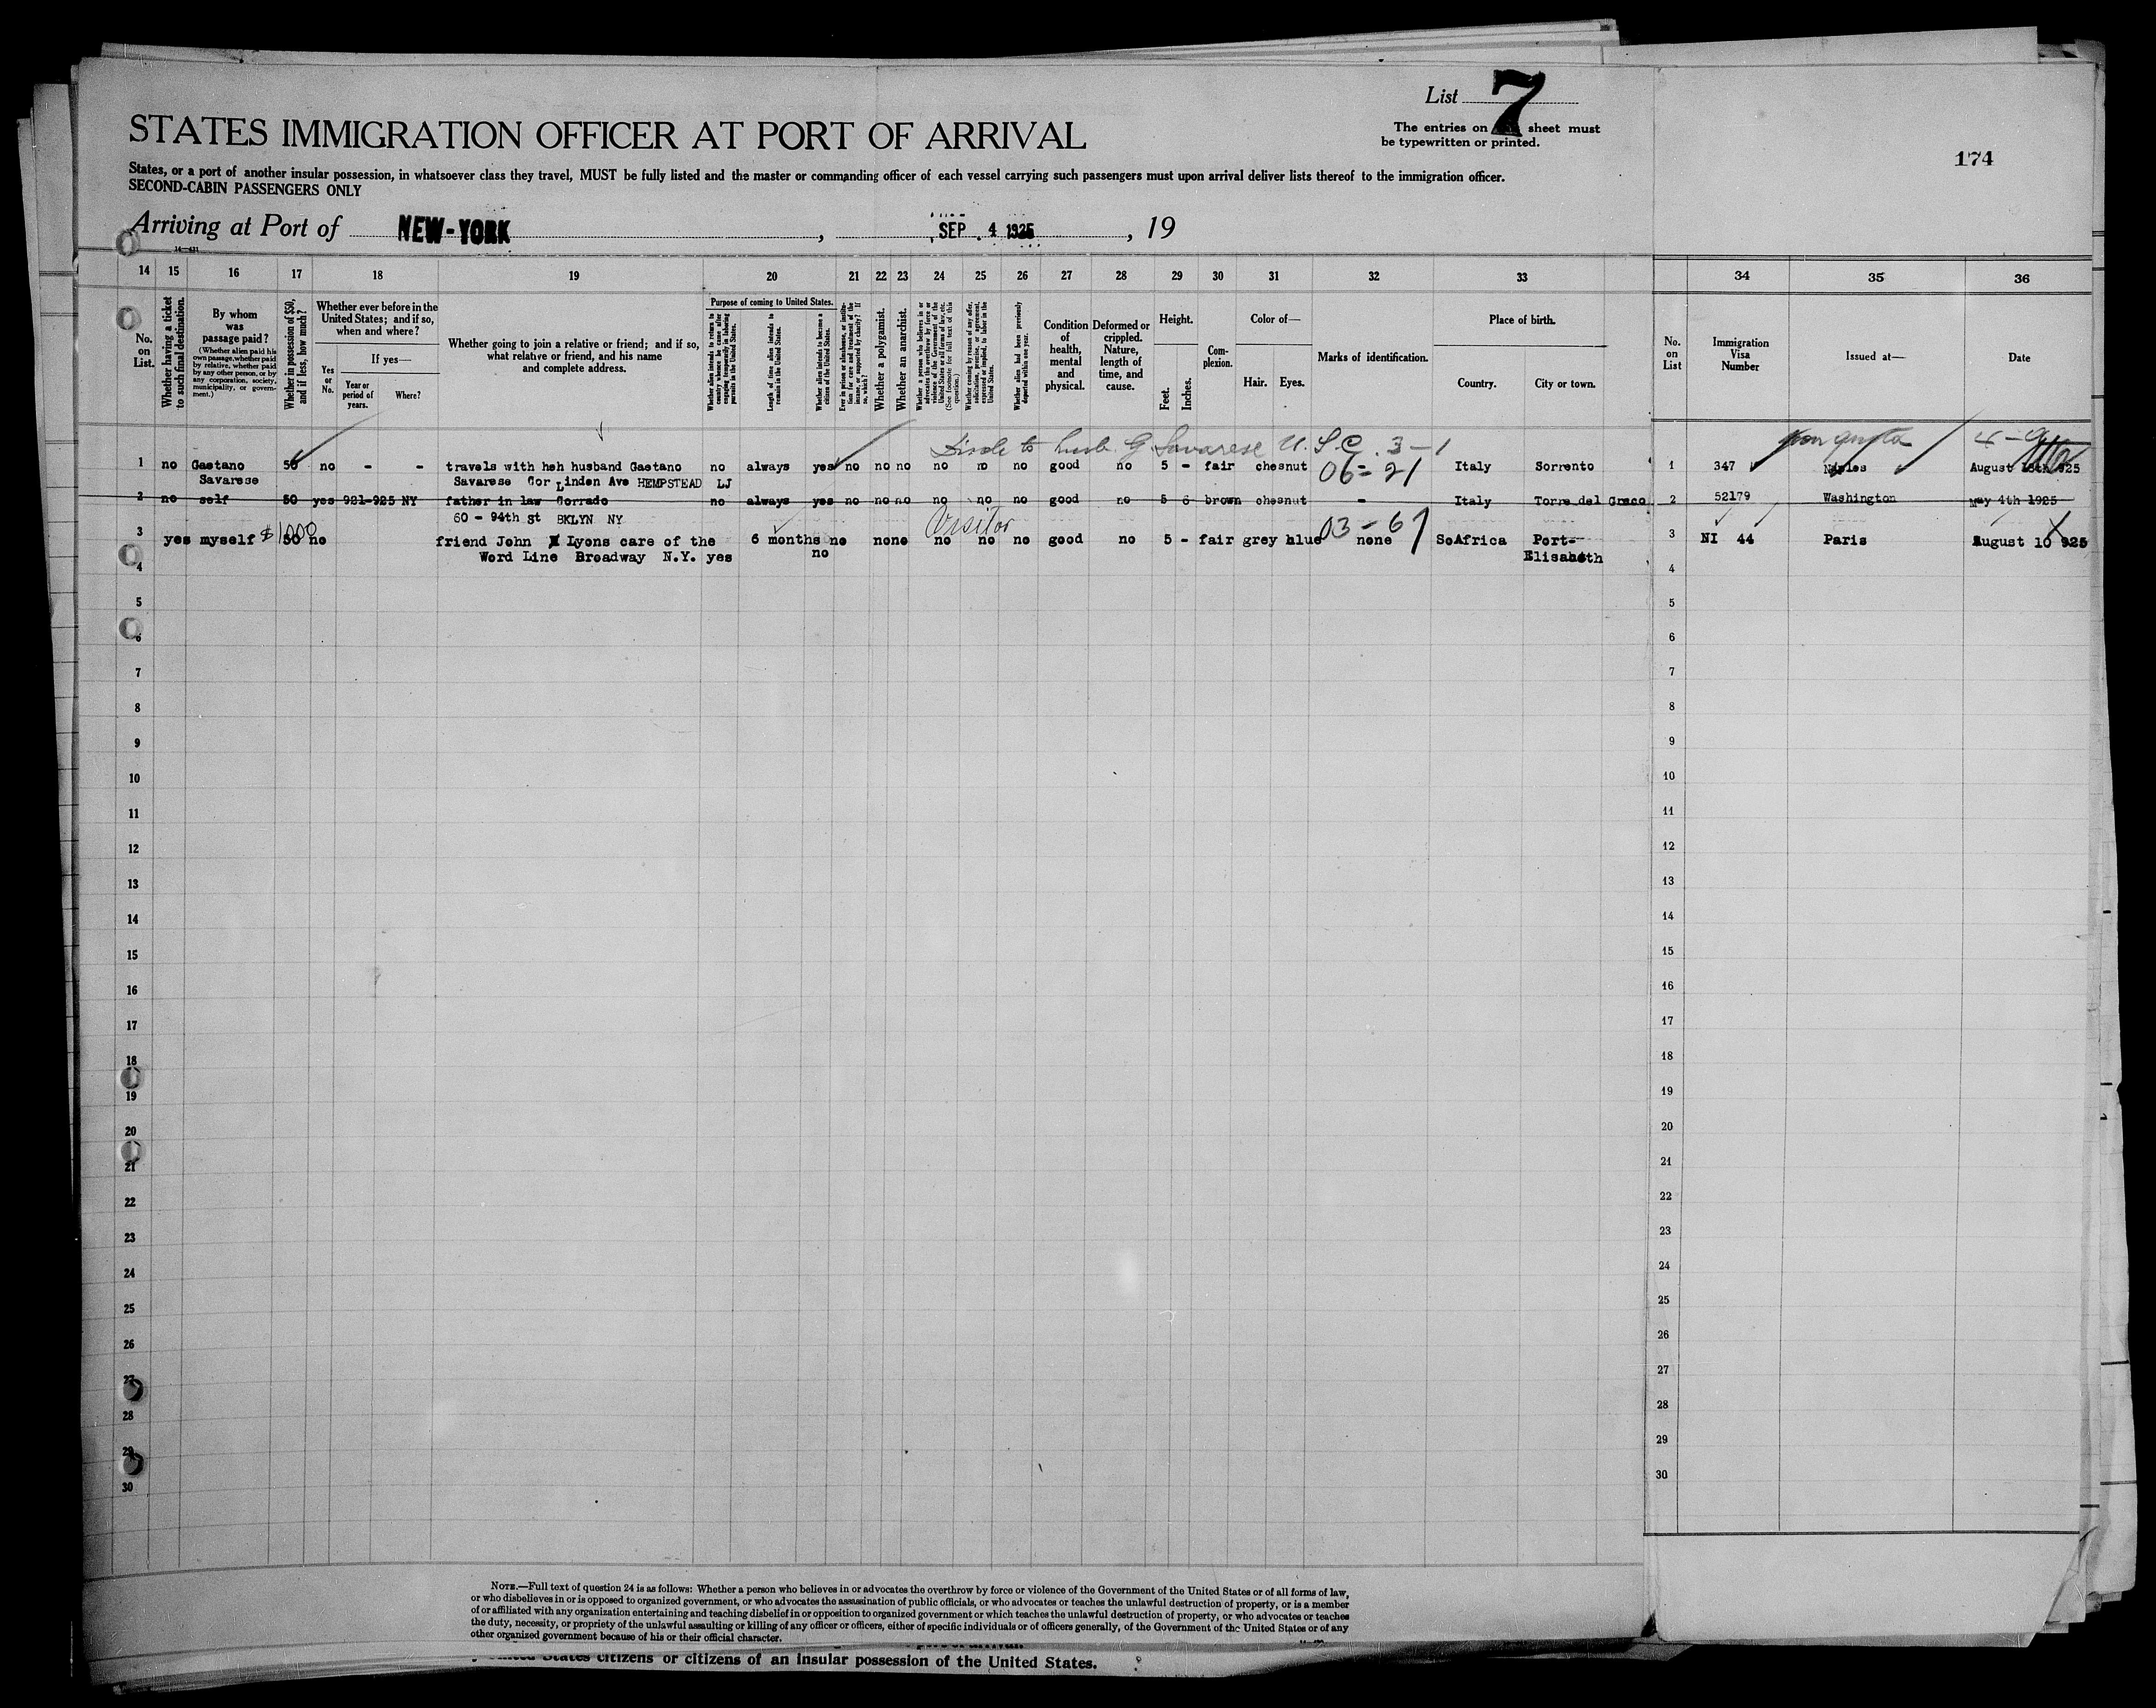 List 7
STATES IMMIGRATION OFFICER AT PORT OF ARRIVAL
The entries on sheet must
be typewritten or printed.
174
States, or a port of another insular possession, in whatsoever class they travel, MUST be fully listed and the master or commanding officer of each vessel carrying such passengers must upon arrival deliver lists thereof to the immigration officer.
SECOND-CABIN PASSENGERS ONLY
Arriving at Port of NEW-YORK, SEP 4 1925, 19
14 15 16 17 18 19 20 21 22 23 24 25 26 27 28 29 30 31 32 33 34 35 36
No. on List.
Whether having a ticket to such final destination.
By whom was passage paid?
(Whether alien paid his own passage, whether paid by relative, whether paid by any other person, or by any corporation, society, municipality, or government.)
Whether in possession of $50, and if less, how much?
Whether ever before in the United States; and if so, when and where?
Yes or No.
If yes—
Year or period of years.
Where?
Whether going to join a relative or friend; and if so, what relative or friend, and his name and complete address.
Purpose of coming to United States.
Whether alien intends to return to country whence he came after engaging temporarily in laboring pursuits in the United States.
Length of time alien intends to remain in the United States.
Whether alien intends to become a citizen of the United States.
Ever in prison or almshouse, or institution for care and treatment of the insane, or supported by charity? If so, which?
Whether a polygamist.
Whether an anarchist.
Whether a person who believes in or advocates the overthrow by force or violence of the Government of the United States or all forms of law, etc. (See footnote for full text of this question.)
Whether coming by reason of any offer, solicitation, promise, or agreement, expressed or implied, to labor in the United States.
Whether alien had been previously deported within one year.
Condition of health, mental and physical.
Deformed or crippled. Nature, length of time, and cause.
Height.
Feet.
Inches.
Complexion.
Color of—
Hair.
Eyes.
Marks of identification.
Place of birth.
Country.
City or town.
No. on List
Immigration Visa Number
Issued at—
Date
to husb. G. Savarese U.S.C. 3-1
non quota
1 no Gaetano 50 no - - travels with heh husband Gaetano no always yes no no no no no no good no 5 - fair chesnut 06-21 Italy Sorrento 1 347 Naples August 925
Savarese Savarese Cor Linden Ave HEMPSTEAD LJ
2 no self 50 yes 921-925 NY father in law Corrado no always yes no no no no no no good no 5 6 brown chesnut - Italy Torre del Greco 2 52179 Washington may 4th 1925
60 - 94th st BKLYN NY Visitor 03-67
3 yes myself $1000 50 no friend John Lyons care of the 6 months no none no no no good no 5 - fair grey blue none SoAfrica Port- 3 NI 44 Paris August 10 925
Word Line Broadway N.Y. yes no Elisabeth
4 4
5 5
6 6
7 7
8 8
9 9
10 10
11 11
12 12
13 13
14 14
15 15
16 16
17 17
18 18
19 19
20 20
21 21
22 22
23 23
24 24
25 25
26 26
27 27
28 28
29 29
30 30
NOTE.—Full text of question 24 is as follows: Whether a person who believes in or advocates the overthrow by force or violence of the Government of the United States or of all forms of law,
or who disbelieves in or is opposed to organized government, or who advocates the assassination of public officials, or who advocates or teaches the unlawful destruction of property, or is a member
of or affiliated with any organization entertaining and teaching disbelief in or opposition to organized government or which teaches the unlawful destruction of property, or who advocates or teaches
the duty, necessity, or propriety of the unlawful assaulting or killing of any officer or officers, either of specific individuals or of officers generally, of the Government of the United States or of any
other organized government because of his or their official character.
United States citizens or citizens of an insular possession of the United States.